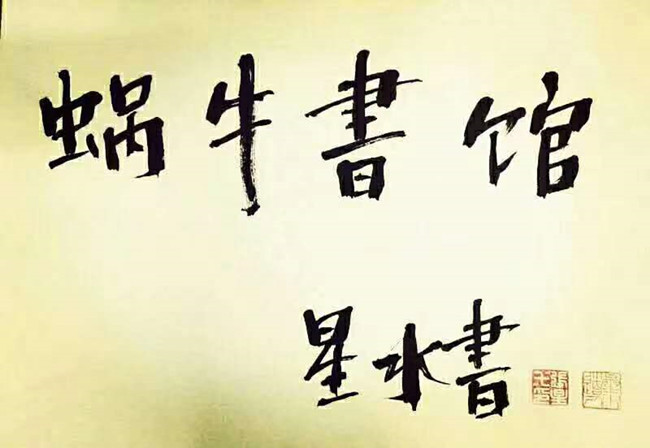 蜗牛書馆
星水書